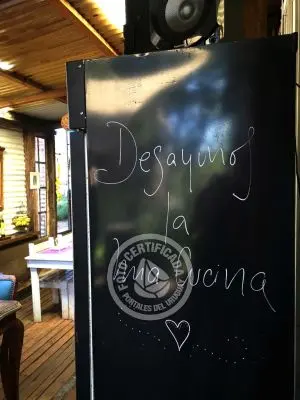 Desayunos
la
Cucina
FOTO CERTIFICADA
PORTALES DEL URUGUAY